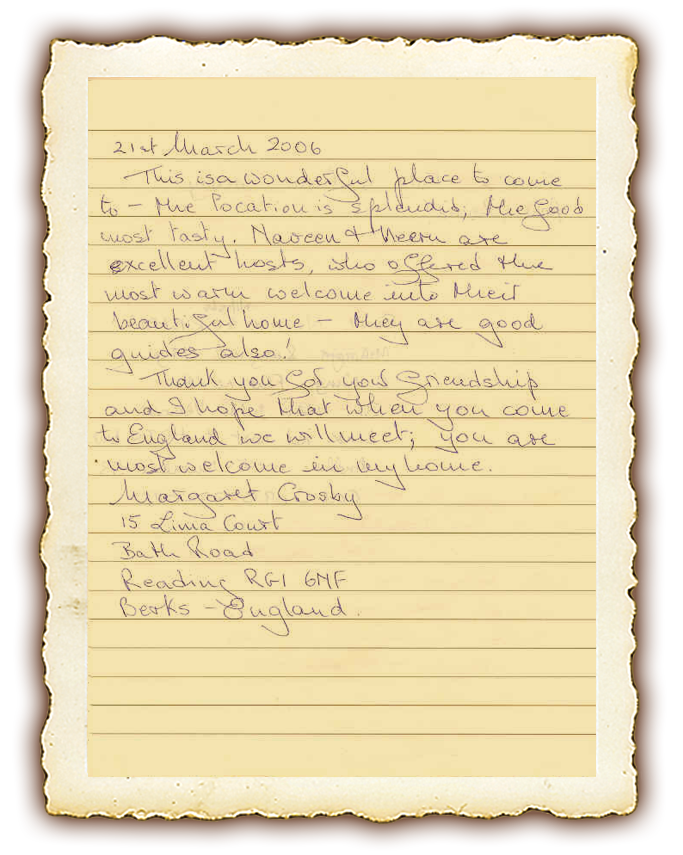 21st March 2006
This is a wonderful place to come
to - the location is splendid, the food
most tasty. Naveen & Neeru are
excellent hosts, who offered the
most warm welcome into their
beautiful home - they are good
guides also!
Thank you for your friendship
and I hope that when you come
to England we will meet; you are
most welcome in my home.
Margaret Crosby
15 Lima Court
Bath Road
Reading RG1 6NF
Berks - England.